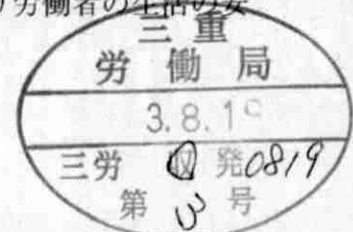 労働者の生活の安
三重
労働局
3.8.19
三労 収 発0819
第 3 号